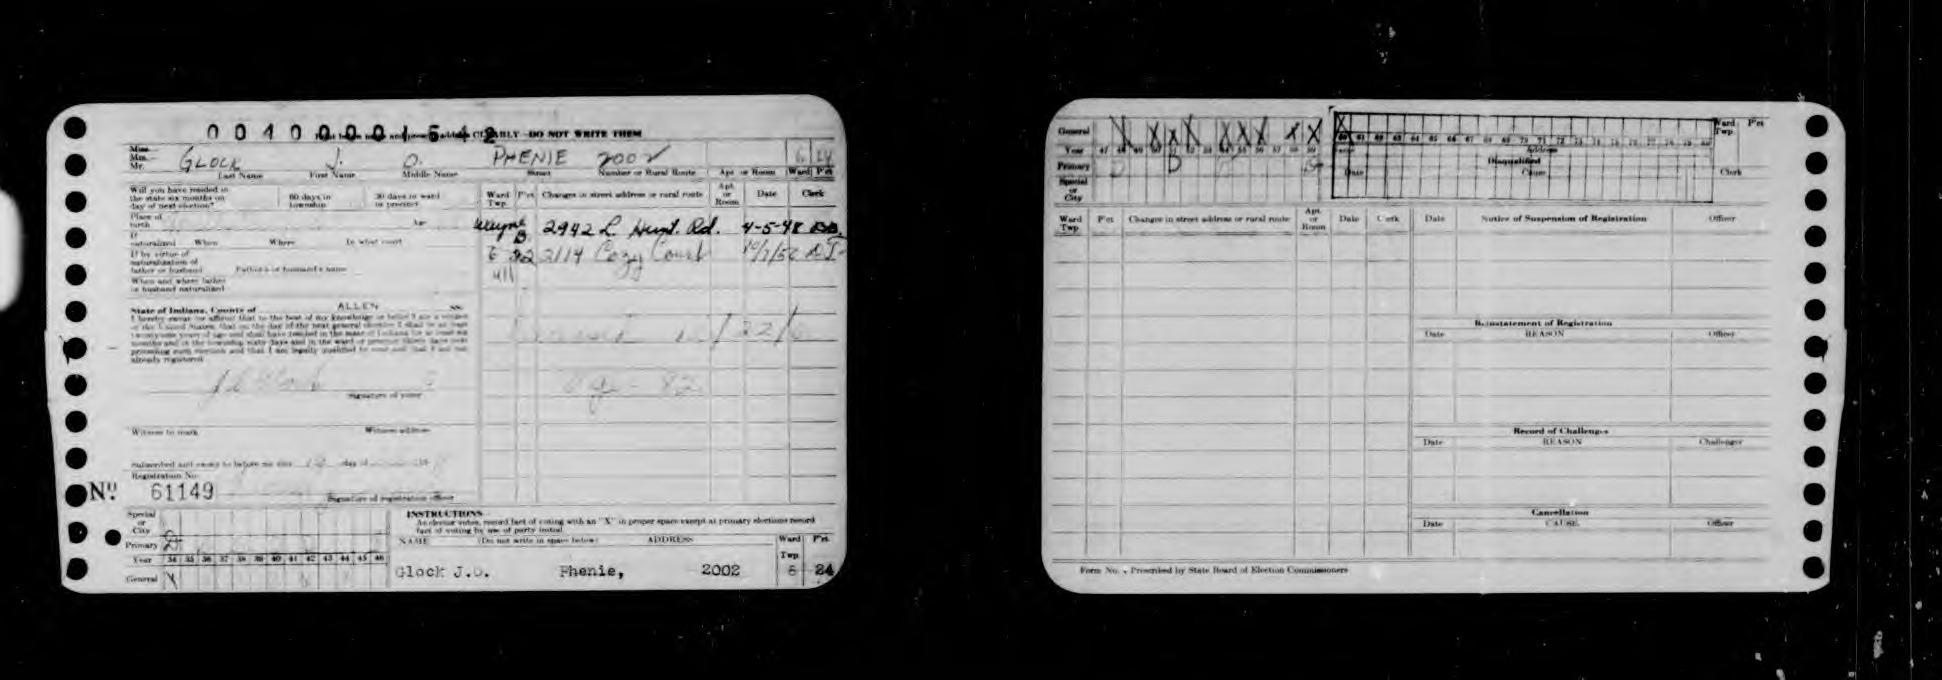 0 0 4 0 0 0 0 1 5 4 2
CLEARLY—DO NOT WRITE THEM
Miss
Mrs.
Mr. GLOCK J. O. PHENIE 2002 6 24
Last Name First Name Middle Name Street Number or Rural Route Apt or Room Ward P'ct
Will you have resided in
the state six months on
day of next election? 60 days in
township 30 days in ward
or precinct
Ward
Twp. P'ct Changes in street address or rural route Apt
or
Room Date Clerk
Place of
birth Age
Wayne B. 2942 L. Hunt. Rd. 4-5-48 BB.
If
naturalized When Where In what court
6 22 2114 Cozy Court
If by virtue of
naturalization of
father or husband Father's or husband's name
411
When and where father
or husband naturalized
State of Indiana, County of ALLEN ss:
I hereby swear (or affirm) that to the best of my knowledge or belief I am a citizen
of the United States, that on the day of the next general election I shall be at least
twenty-one years of age and shall have resided in the state of Indiana for at least six
months and in the township sixty days and in the ward or precinct thirty days next
preceding such election and that I am legally qualified to vote and that I am not
already registered.
Age - 82
Signature of voter
Witness to mark Witness address
Subscribed and sworn to before me this day of
Registration No.
No. 61149
Signature of registration officer
Special
or
City
Primary D
Year 34 35 36 37 38 39 40 41 42 43 44 45 46
General X
INSTRUCTIONS
As elector votes, record fact of voting with an "X" in proper space except at primary elections record
fact of voting by use of party initial.
NAME (Do not write in space below) ADDRESS Ward
Twp P'ct
Glock J.O. Phenie, 2002 6 24
General X X X X X X X X X X
Year 47 48 49 50 51 52 53 54 55 56 57 58 59
Primary D D
Special
or
City
60 61 62 63 64 65 66 67 68 69 70 71 72 73 74 75 76 77 78 79 80
Ward
Twp. P'ct
Address
Disqualified
Date Cause Clerk
Ward
Twp P'ct Changes in street address or rural route Apt
or
Room Date Clerk
Date Notice of Suspension of Registration Officer
Reinstatement of Registration
Date REASON Officer
Record of Challenges
Date REASON Challenger
Cancellation
Date CAUSE Officer
Form No. . Prescribed by State Board of Election Commissioners